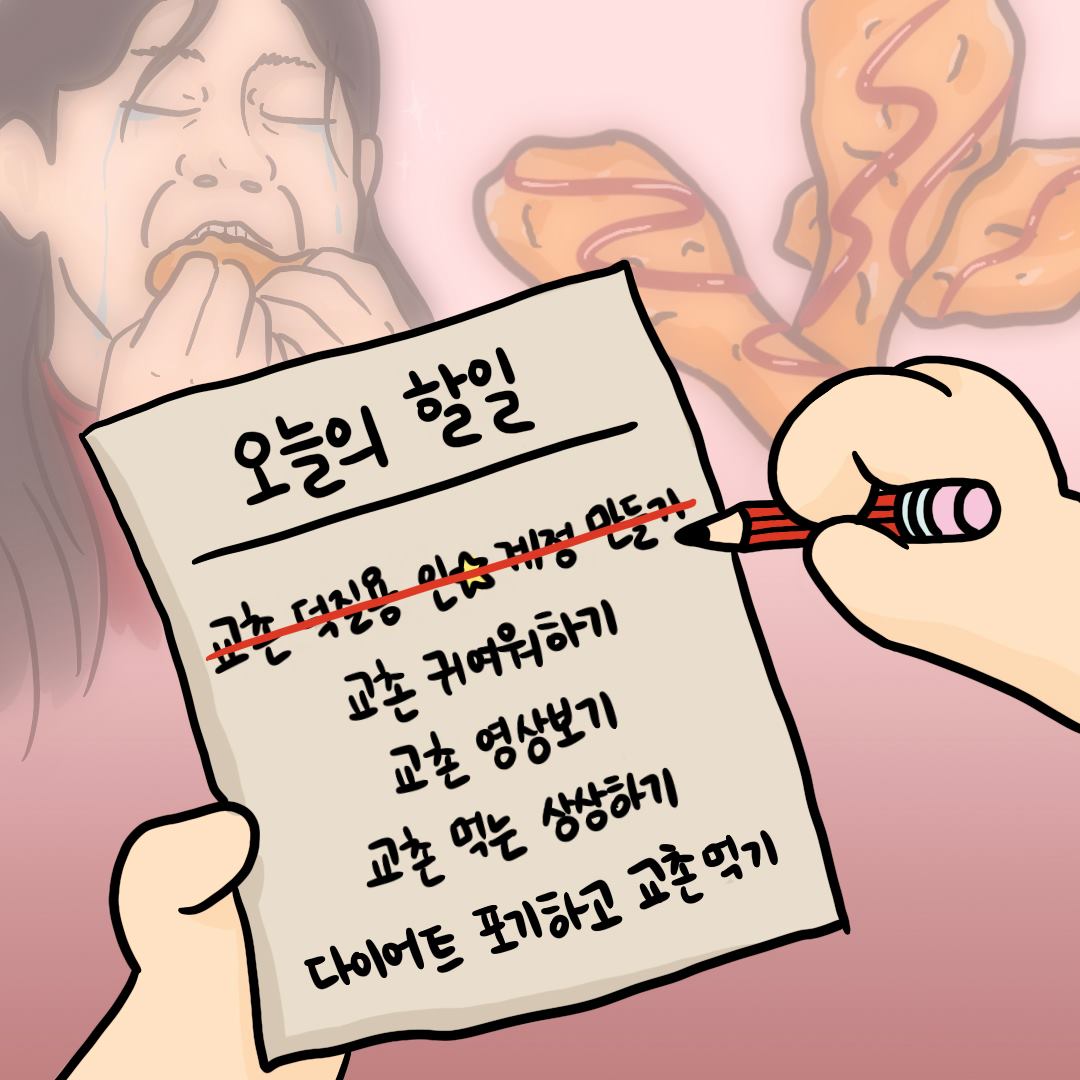 오늘의 할일
교촌 덕질용 인⭐계정 만들기
교촌 귀여워하기
교촌 영상보기
교촌 먹는 상상하기
다이어트 포기하고 교촌먹기